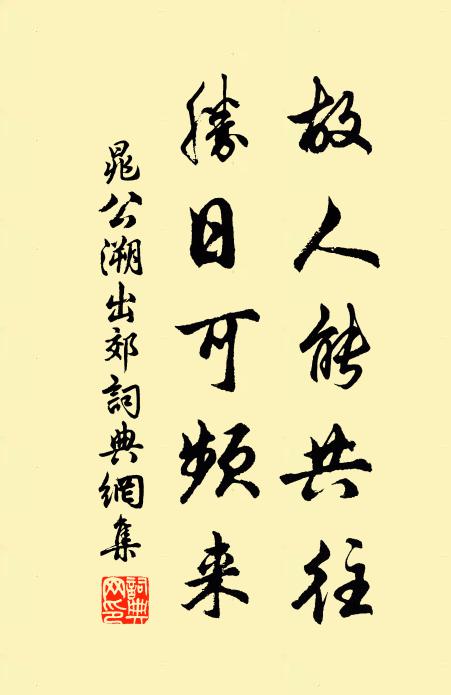 故人能共往
勝日可頻来
晁公溯出郊詞典網集
詞典网印